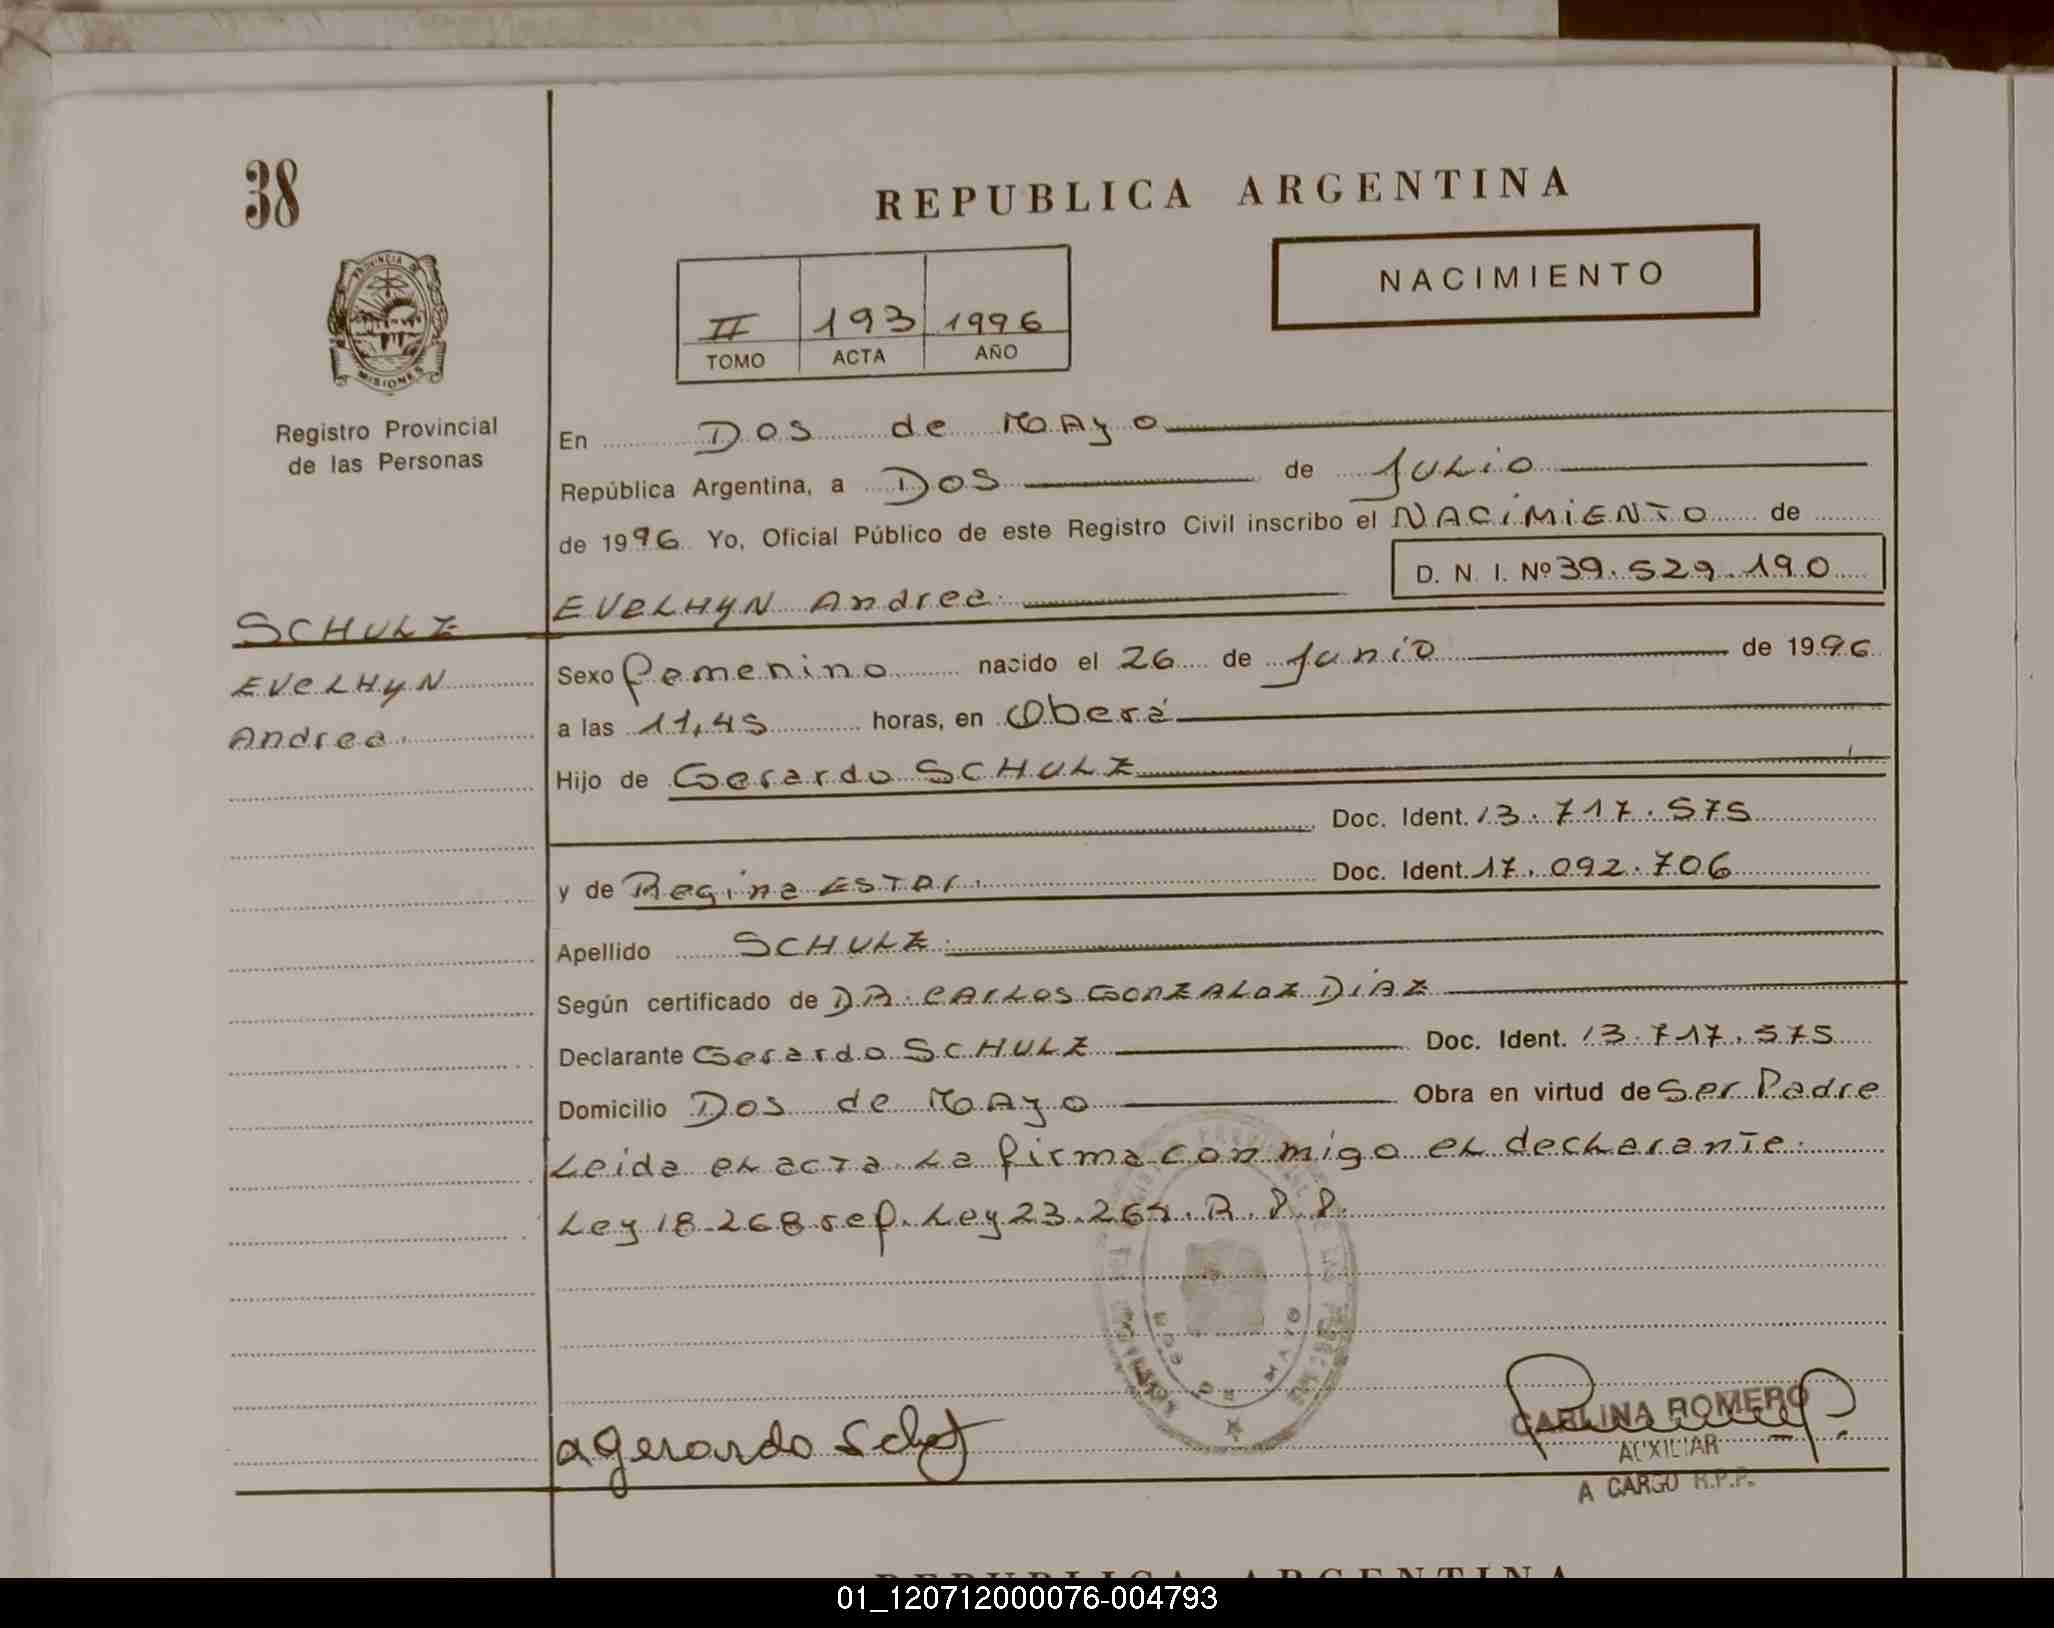 38
REPUBLICA ARGENTINA
NACIMIENTO
II 193 1996
TOMO ACTA AÑO
PROVINCIA DE
MISIONES
Registro Provincial
de las Personas
En Dos de MAyo
República Argentina, a Dos de JULio
de 1996 Yo, Oficial Público de este Registro Civil inscribo el NACiMiENTO de
D. N. I. Nº 39.529.190
SCHULZ
EVELHyN Andrea.
EVELHyN Andrea.
Sexo femenino nacido el 26 de Junio de 1996
a las 11,45 horas, en Oberá
Hijo de Gerardo SCHULZ
Doc. Ident. 13.717.575
y de Regina Doc. Ident. 17.092.706
Apellido SCHULZ
Según certificado de DR. CARLOS GONZALEZ DiAZ
Declarante Gerardo SCHULZ Doc. Ident. 13.717.575
Domicilio Dos de MAyo Obra en virtud de Ser Padre
Leida el acta la firma conmigo el declarante.
Ley 18.268 ref. Ley 23.264. R.P.P.
agerardo
CARLINA ROMERO
AUXILIAR
A CARGO R.P.P.
REPUBLICA ARGENTINA
01_120712000076-004793